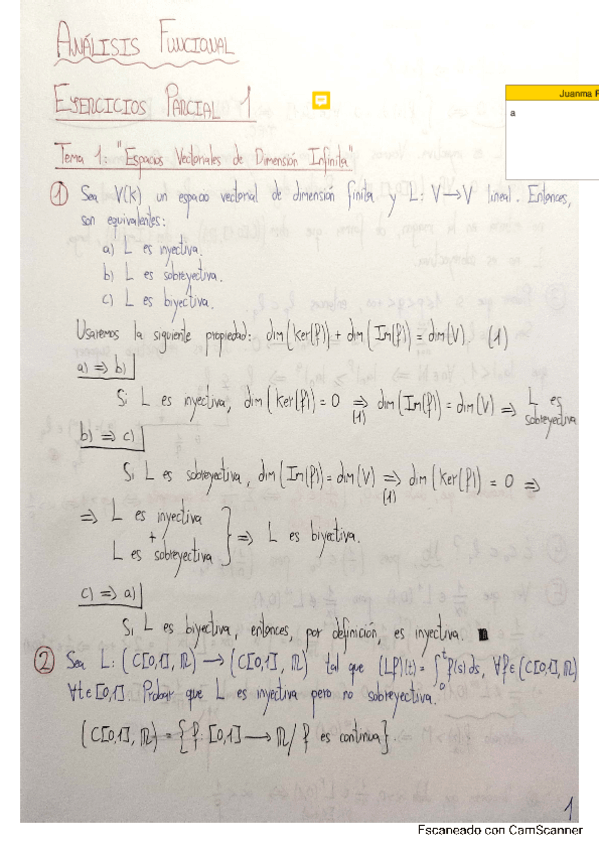 ANÁLISIS FUNCIONAL
EJERCICIOS PARCIAL 1
Juanma
a
Tema 1: "Espacios Vectoriales de Dimensión Infinita"
1 Sea V(K) un espacio vectorial de dimensión finita y L: V → V lineal. Entonces,
son equivalentes:
a) L es inyectiva.
b) L es sobreyectiva.
c) L es biyectiva.
Usaremos la siguiente propiedad: dim(Ker(f)) + dim(Im(f)) = dim(V). (1)
a) => b)
Si L es inyectiva, dim(Ker(f)) = 0 => (1) dim(Im(f)) = dim(V) => L es
sobreyectiva
b) => c)
Si L es sobreyectiva, dim(Im(f)) = dim(V) => (1) dim(Ker(f)) = 0 =>
=> L es inyectiva
+
L es sobreyectiva } => L es biyectiva.
c) => a)
Si L es biyectiva, entonces, por definición, es inyectiva. ■
2 Sea L: (C[0,1], ℝ) → (C[0,1], ℝ) tal que (Lf)(t) = ∫₀ᵗ f(s) ds, ∀f ∈ (C[0,1], ℝ)
∀t ∈ [0,1]. Probar que L es inyectiva pero no sobreyectiva.
(C[0,1], ℝ) = { f: [0,1] → ℝ / f es continua }.
1
Escaneado con CamScanner